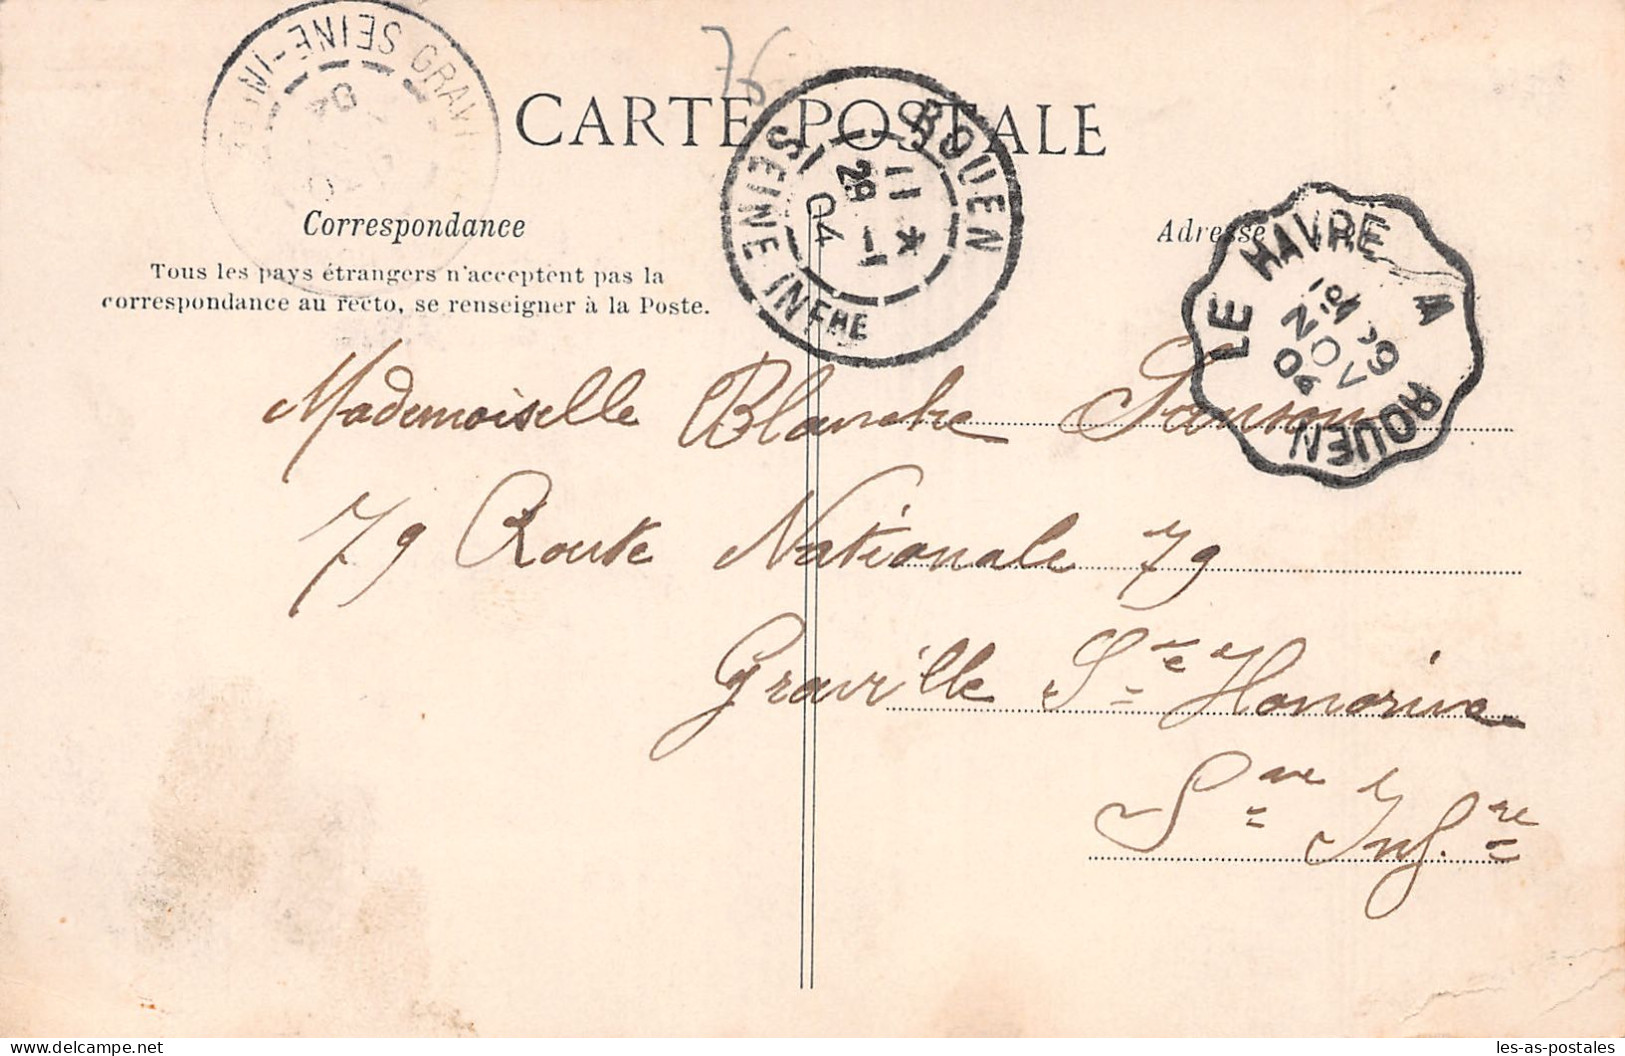 SEINE-INF
GRAV
04
76
CARTE POSTALE
ROUEN
11 *
29 -11
04
SEINE INFRE
Correspondance
Adresse
Tous les pays étrangers n'acceptent pas la
correspondance au recto, se renseigner à la Poste.
LE HAVRE A
ROUEN
29
NOV
04
Mademoiselle Blanche Samson
79 Route Nationale 79
Graville Ste Honorine
Sne Infre
les-as-postales